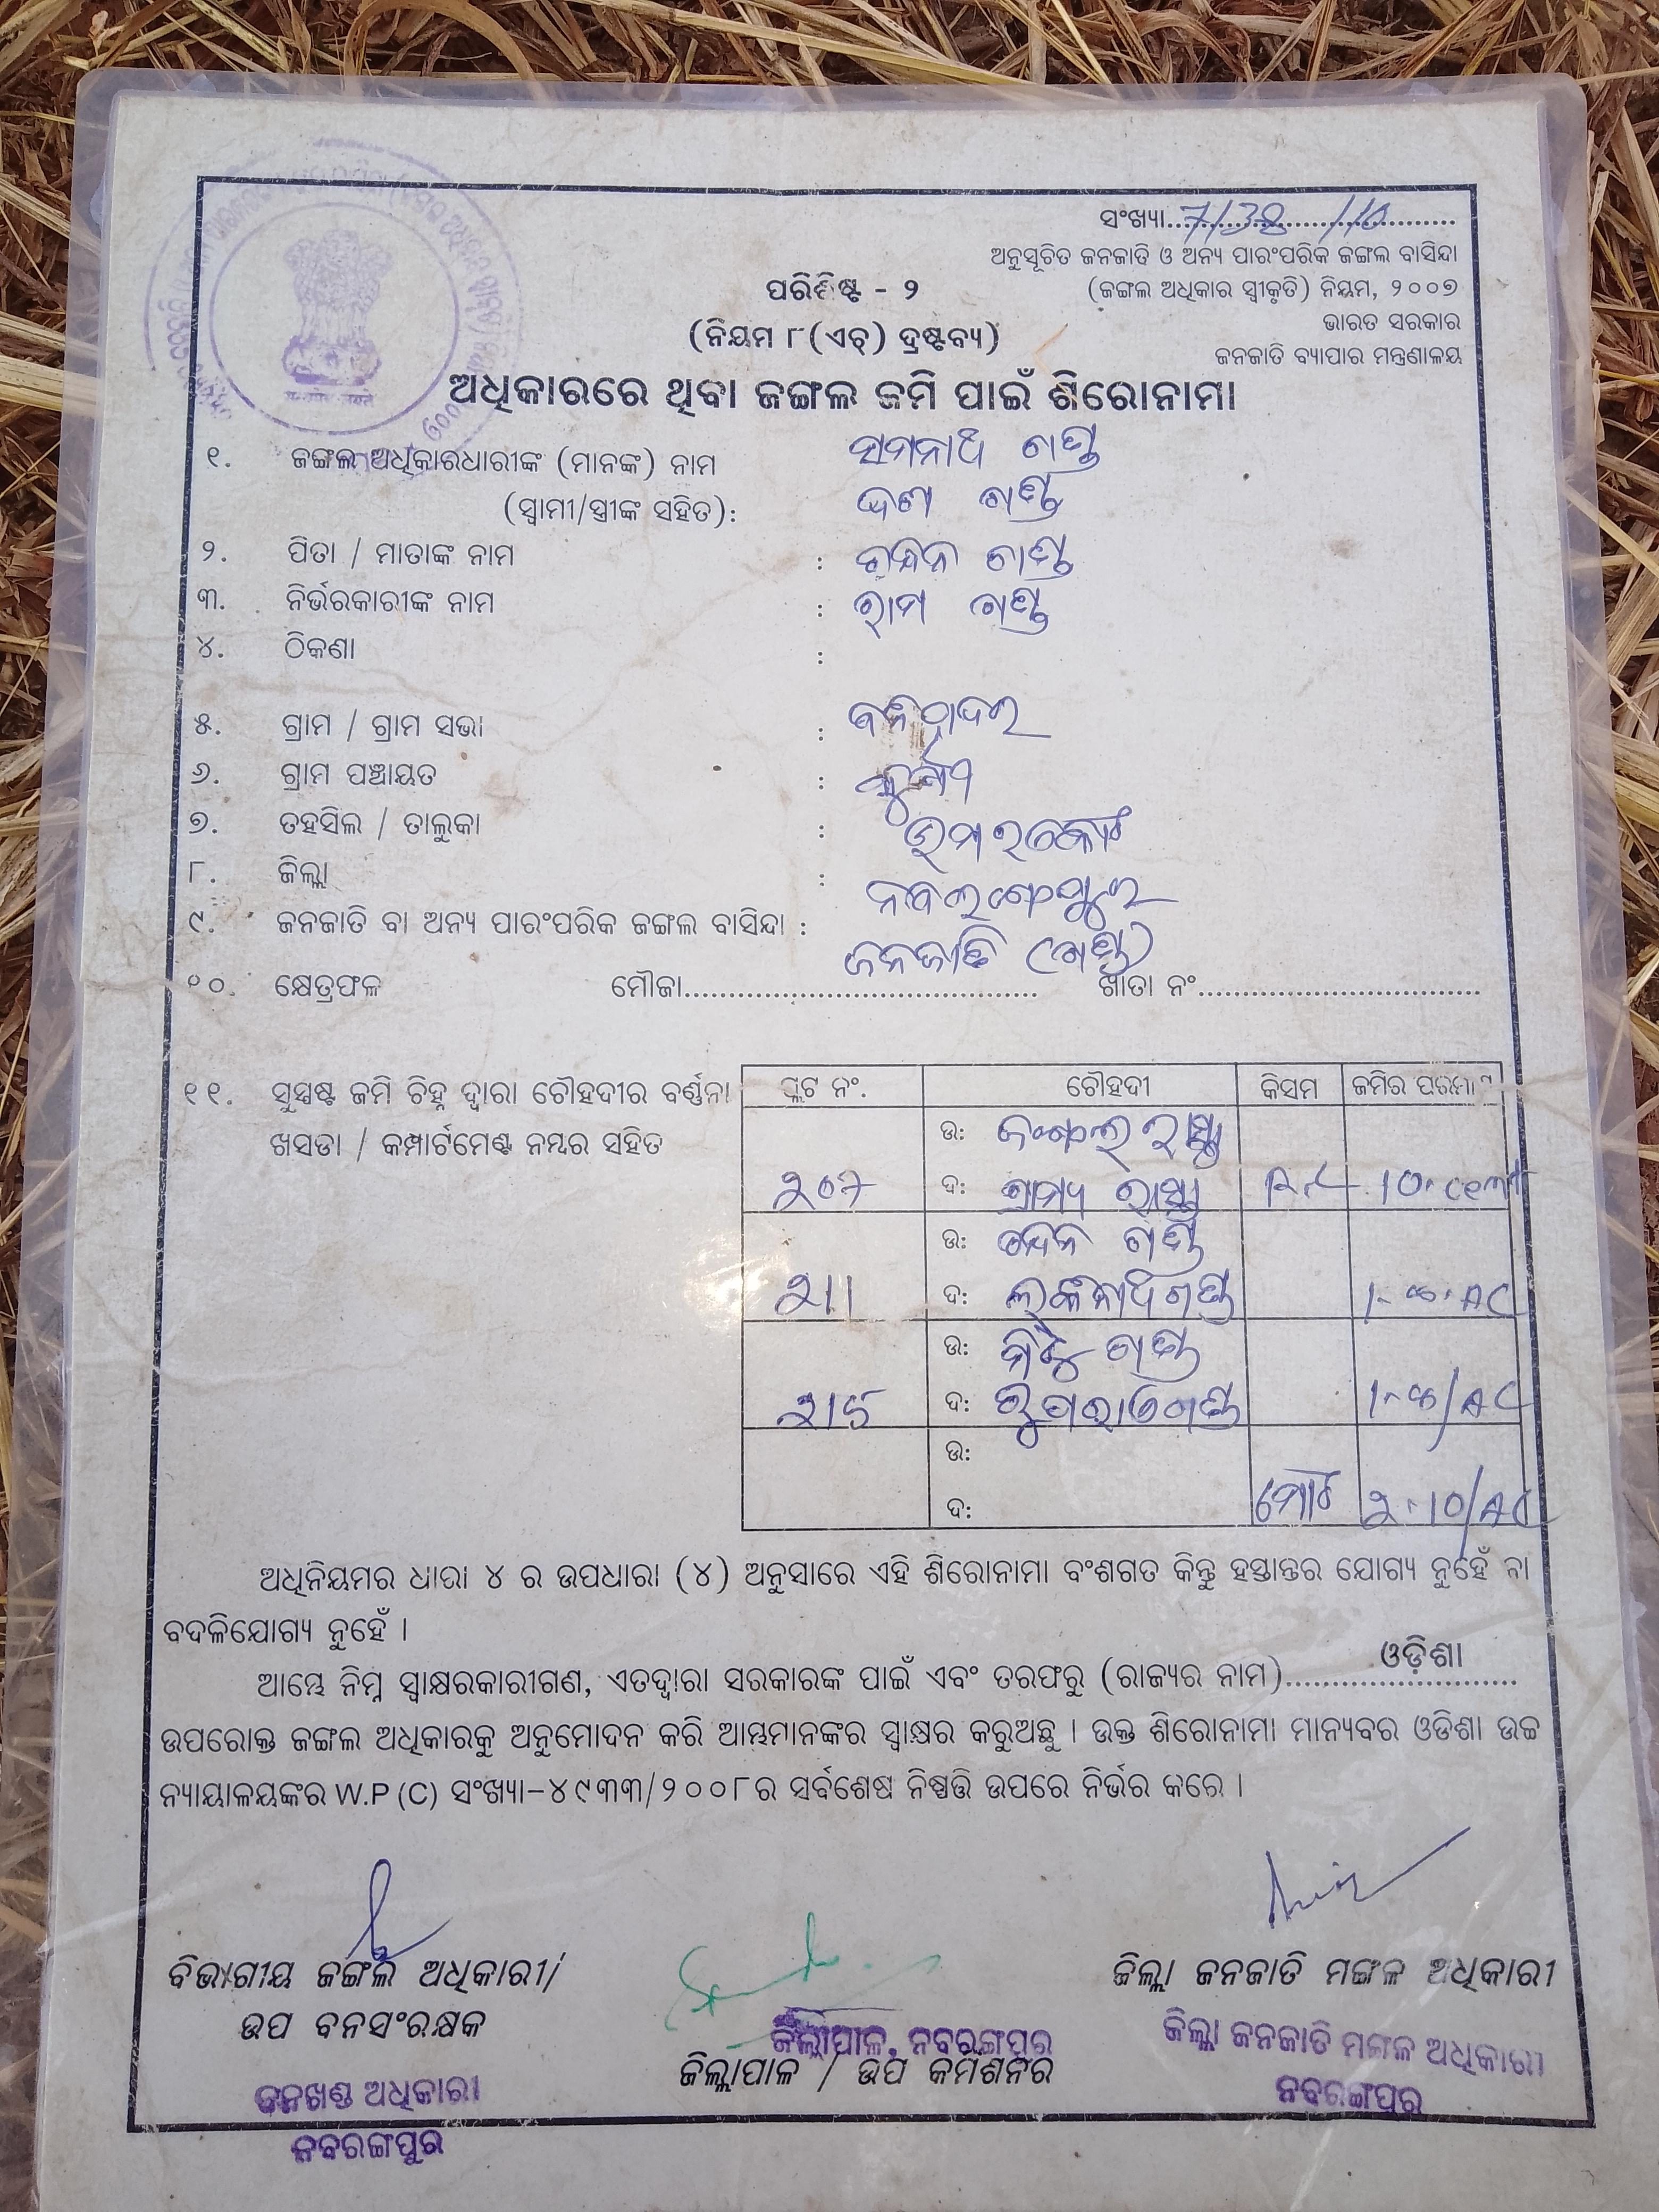 ସଂଖ୍ୟା
ଅନୁସୂଚିତ ଜନଜାତି ଓ ଅନ୍ୟ ପାରଂପରିକ ଜଙ୍ଗଲ ବାସିନ୍ଦା
(ଜଙ୍ଗଲ ଅଧିକାର ସ୍ୱୀକୃତି) ନିୟମ, ୨୦୦୭
ଭାରତ ସରକାର
ଜନଜାତି ବ୍ୟାପାର ମନ୍ତ୍ରଣାଳୟ
ପରିଶିଷ୍ଟ - ୨
(ନିୟମ ୮(ଏଚ୍) ଦ୍ରଷ୍ଟବ୍ୟ)
ଅଧିକାରରେ ଥିବା ଜଙ୍ଗଲ ଜମି ପାଇଁ ଶିରୋନାମା
୧. ଜଙ୍ଗଲ ଅଧିକାରଧାରୀଙ୍କ (ମାନଙ୍କ) ନାମ ଗଣ୍ଡ
(ସ୍ୱାମୀ/ସ୍ତ୍ରୀଙ୍କ ସହିତ): ଗଣ୍ଡ
୨. ପିତା / ମାତାଙ୍କ ନାମ : ଗଣ୍ଡ
୩. ନିର୍ଭରକାରୀଙ୍କ ନାମ : ରାମ ଗଣ୍ଡ
୪. ଠିକଣା :
୫. ଗ୍ରାମ / ଗ୍ରାମ ସଭା :
୬. ଗ୍ରାମ ପଞ୍ଚାୟତ :
୭. ତହସିଲ / ତାଲୁକା : ଉମରକୋଟ
୮. ଜିଲ୍ଲା : ନବରଙ୍ଗପୁର
୯. ଜନଜାତି ବା ଅନ୍ୟ ପାରଂପରିକ ଜଙ୍ଗଲ ବାସିନ୍ଦା : ଜନଜାତି (ଗଣ୍ଡ)
୧୦. କ୍ଷେତ୍ରଫଳ ମୌଜା........ ଖାତା ନଂ........
୧୧. ସୁସ୍ପଷ୍ଟ ଜମି ଚିହ୍ନ ଦ୍ୱାରା ଚୌହଦୀର ବର୍ଣ୍ଣନା
ଖସଡା / କମ୍ପାର୍ଟମେଣ୍ଟ ନମ୍ବର ସହିତ
ପ୍ଲଟ ନଂ. ଚୌହଦୀ କିସମ ଜମିର ପରିମାଣ
ଉ: ଜଙ୍ଗଲ ରାସ୍ତା
ଦ: ଗ୍ରାମ୍ୟ ରାସ୍ତା
ଉ: ଗଣ୍ଡ
୨୧୧ ଦ: ଗଣ୍ଡ
ଉ: ଗଣ୍ଡ
ଦ: ଗଣ୍ଡ
ଉ:
ଦ: ମୋଟ
ଅଧିନିୟମର ଧାରା ୪ ର ଉପଧାରା (୪) ଅନୁସାରେ ଏହି ଶିରୋନାମା ବଂଶଗତ କିନ୍ତୁ ହସ୍ତାନ୍ତର ଯୋଗ୍ୟ ନୁହେଁ ବା
ବଦଳିଯୋଗ୍ୟ ନୁହେଁ ।
ଆମ୍ଭେ ନିମ୍ନ ସ୍ୱାକ୍ଷରକାରୀଗଣ, ଏତଦ୍ୱାରା ସରକାରଙ୍କ ପାଇଁ ଏବଂ ତରଫରୁ (ରାଜ୍ୟର ନାମ) ଓଡ଼ିଶା
ଉପରୋକ୍ତ ଜଙ୍ଗଲ ଅଧିକାରକୁ ଅନୁମୋଦନ କରି ଆମ୍ଭମାନଙ୍କର ସ୍ୱାକ୍ଷର କରୁଅଛୁ । ଉକ୍ତ ଶିରୋନାମା ମାନ୍ୟବର ଓଡିଶା ଉଚ୍ଚ
ନ୍ୟାୟାଳୟଙ୍କର W.P (C) ସଂଖ୍ୟା-୪୯୩୩/୨୦୦୮ର ସର୍ବଶେଷ ନିଷ୍ପତ୍ତି ଉପରେ ନିର୍ଭର କରେ ।
ବିଭାଗୀୟ ଜଙ୍ଗଲ ଅଧିକାରୀ/
ଉପ ବନସଂରକ୍ଷକ
ବନଖଣ୍ଡ ଅଧିକାରୀ
ନବରଙ୍ଗପୁର
ଜିଲ୍ଲାପାଳ, ନବରଙ୍ଗପୁର
ଜିଲ୍ଲାପାଳ / ଉପ କମିଶନର
ଜିଲ୍ଲା ଜନଜାତି ମଙ୍ଗଳ ଅଧିକାରୀ
ଜିଲ୍ଲା ଜନଜାତି ମଙ୍ଗଳ ଅଧିକାରୀ
ନବରଙ୍ଗପୁର